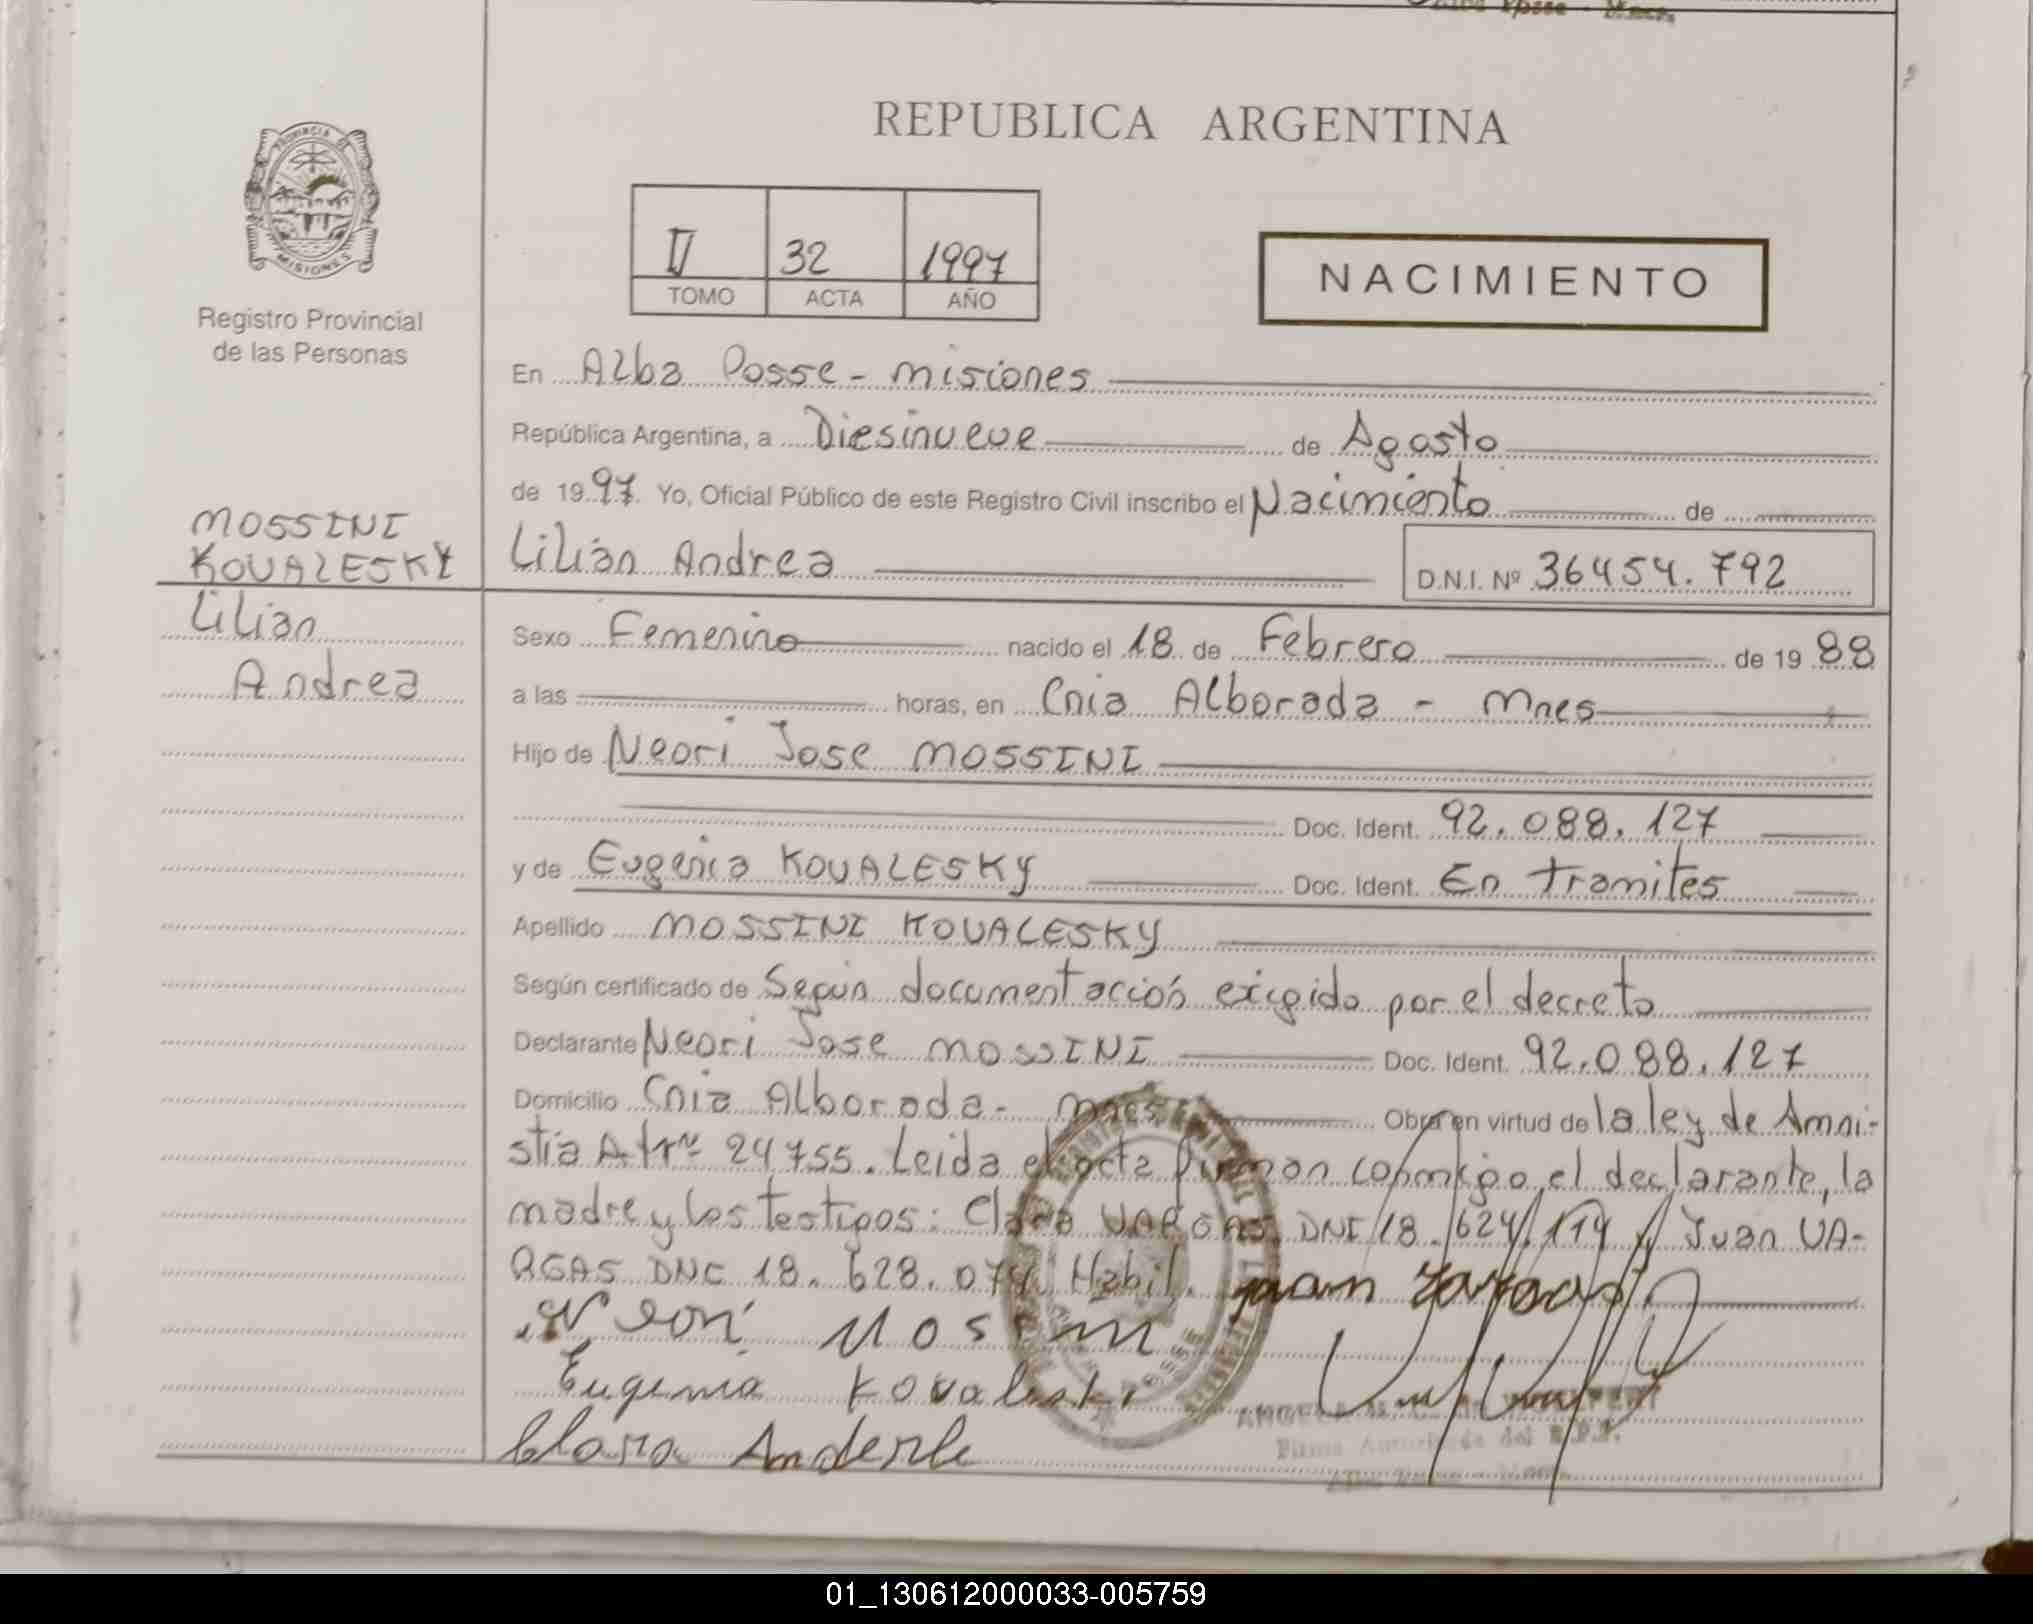 REPUBLICA ARGENTINA
PROVINCIA DE
MISIONES
Registro Provincial
de las Personas
II 32 1997
TOMO ACTA AÑO
NACIMIENTO
En Alba Posse - Misiones
República Argentina, a Diesinueve de Agosto
de 1997 Yo, Oficial Público de este Registro Civil inscribo el Nacimiento de
MOSSINI
KOVALESKY
Lilián Andrea D.N.I. Nº 36454.792
Lilián
Andrea
Sexo Femenino nacido el 18 de Febrero de 1988
a las horas, en Cnia Alborada - Mnes
Hijo de Neori Jose MOSSINI
Doc. Ident. 92.088.127
y de Eugenia KOVALESKY Doc. Ident. En tramites
Apellido MOSSINI KOVALESKY
Según certificado de Según documentación exigido por el decreto
Declarante Neori Jose MOSSINI Doc. Ident. 92.088.127
Domicilio Cnia Alborada - Mnes Obra en virtud de la ley de Amni-
stia Atrº 24755. Leida el acta firman conmigo, el declarante, la
madre y los testigos: Clara VARGAS DNI 18.624.114 y Juan VA-
RGAS DNI 18.628.074 Habil. Juan
Neori Mossini
Eugenia Kovaleski
Clara Anderle
01_130612000033-005759